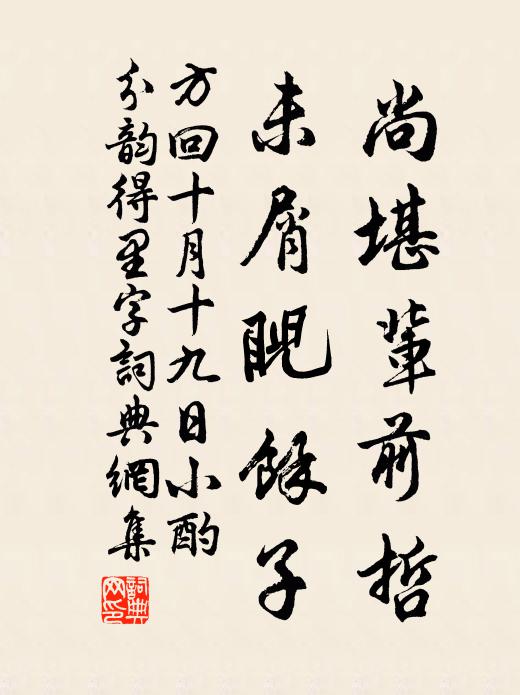 尚堪輩前哲
未屑睨餘子
方回十月十九日小酌
分韵得里字詞典網集
詞典网印